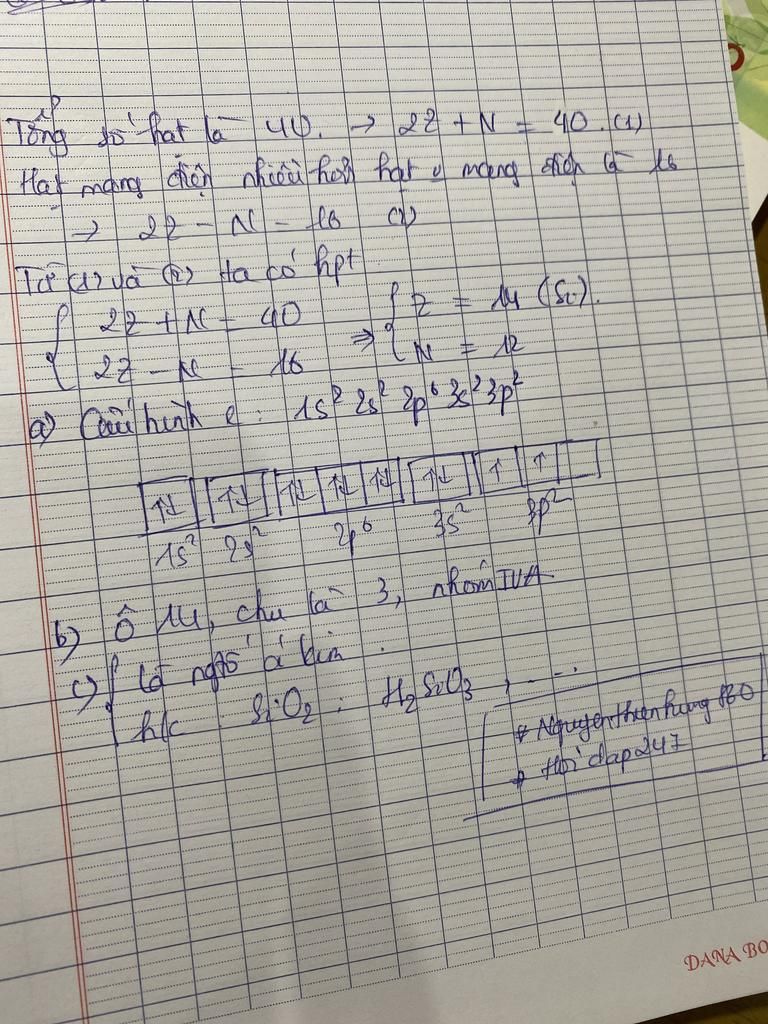 Tổng số hạt là 40. → 2Z + N = 40 (1)
Hạt mang điện nhiều hơn hạt o mang điện là 16
→ 2Z - N = 16 (2)
Từ (1) và (2) ta có hpt
{ 2Z + N = 40
2Z - N = 16 ⇒ { Z = 14 (Si).
N = 12
a) Cấu hình e : 1s² 2s² 2p⁶ 3s² 3p²
↑↓ ↑↓ ↑↓ ↑↓ ↑↓ ↑↓ ↑ ↑
1s² 2s² 2p⁶ 3s² 3p²
b) Ô 14, chu kì 3, nhóm IVA
c) { là ngtố á kim.
h/c : SiO₂ ; H₂SiO₃ , ...
* Nguyenthienhung
* Hoidap247
DANA BO